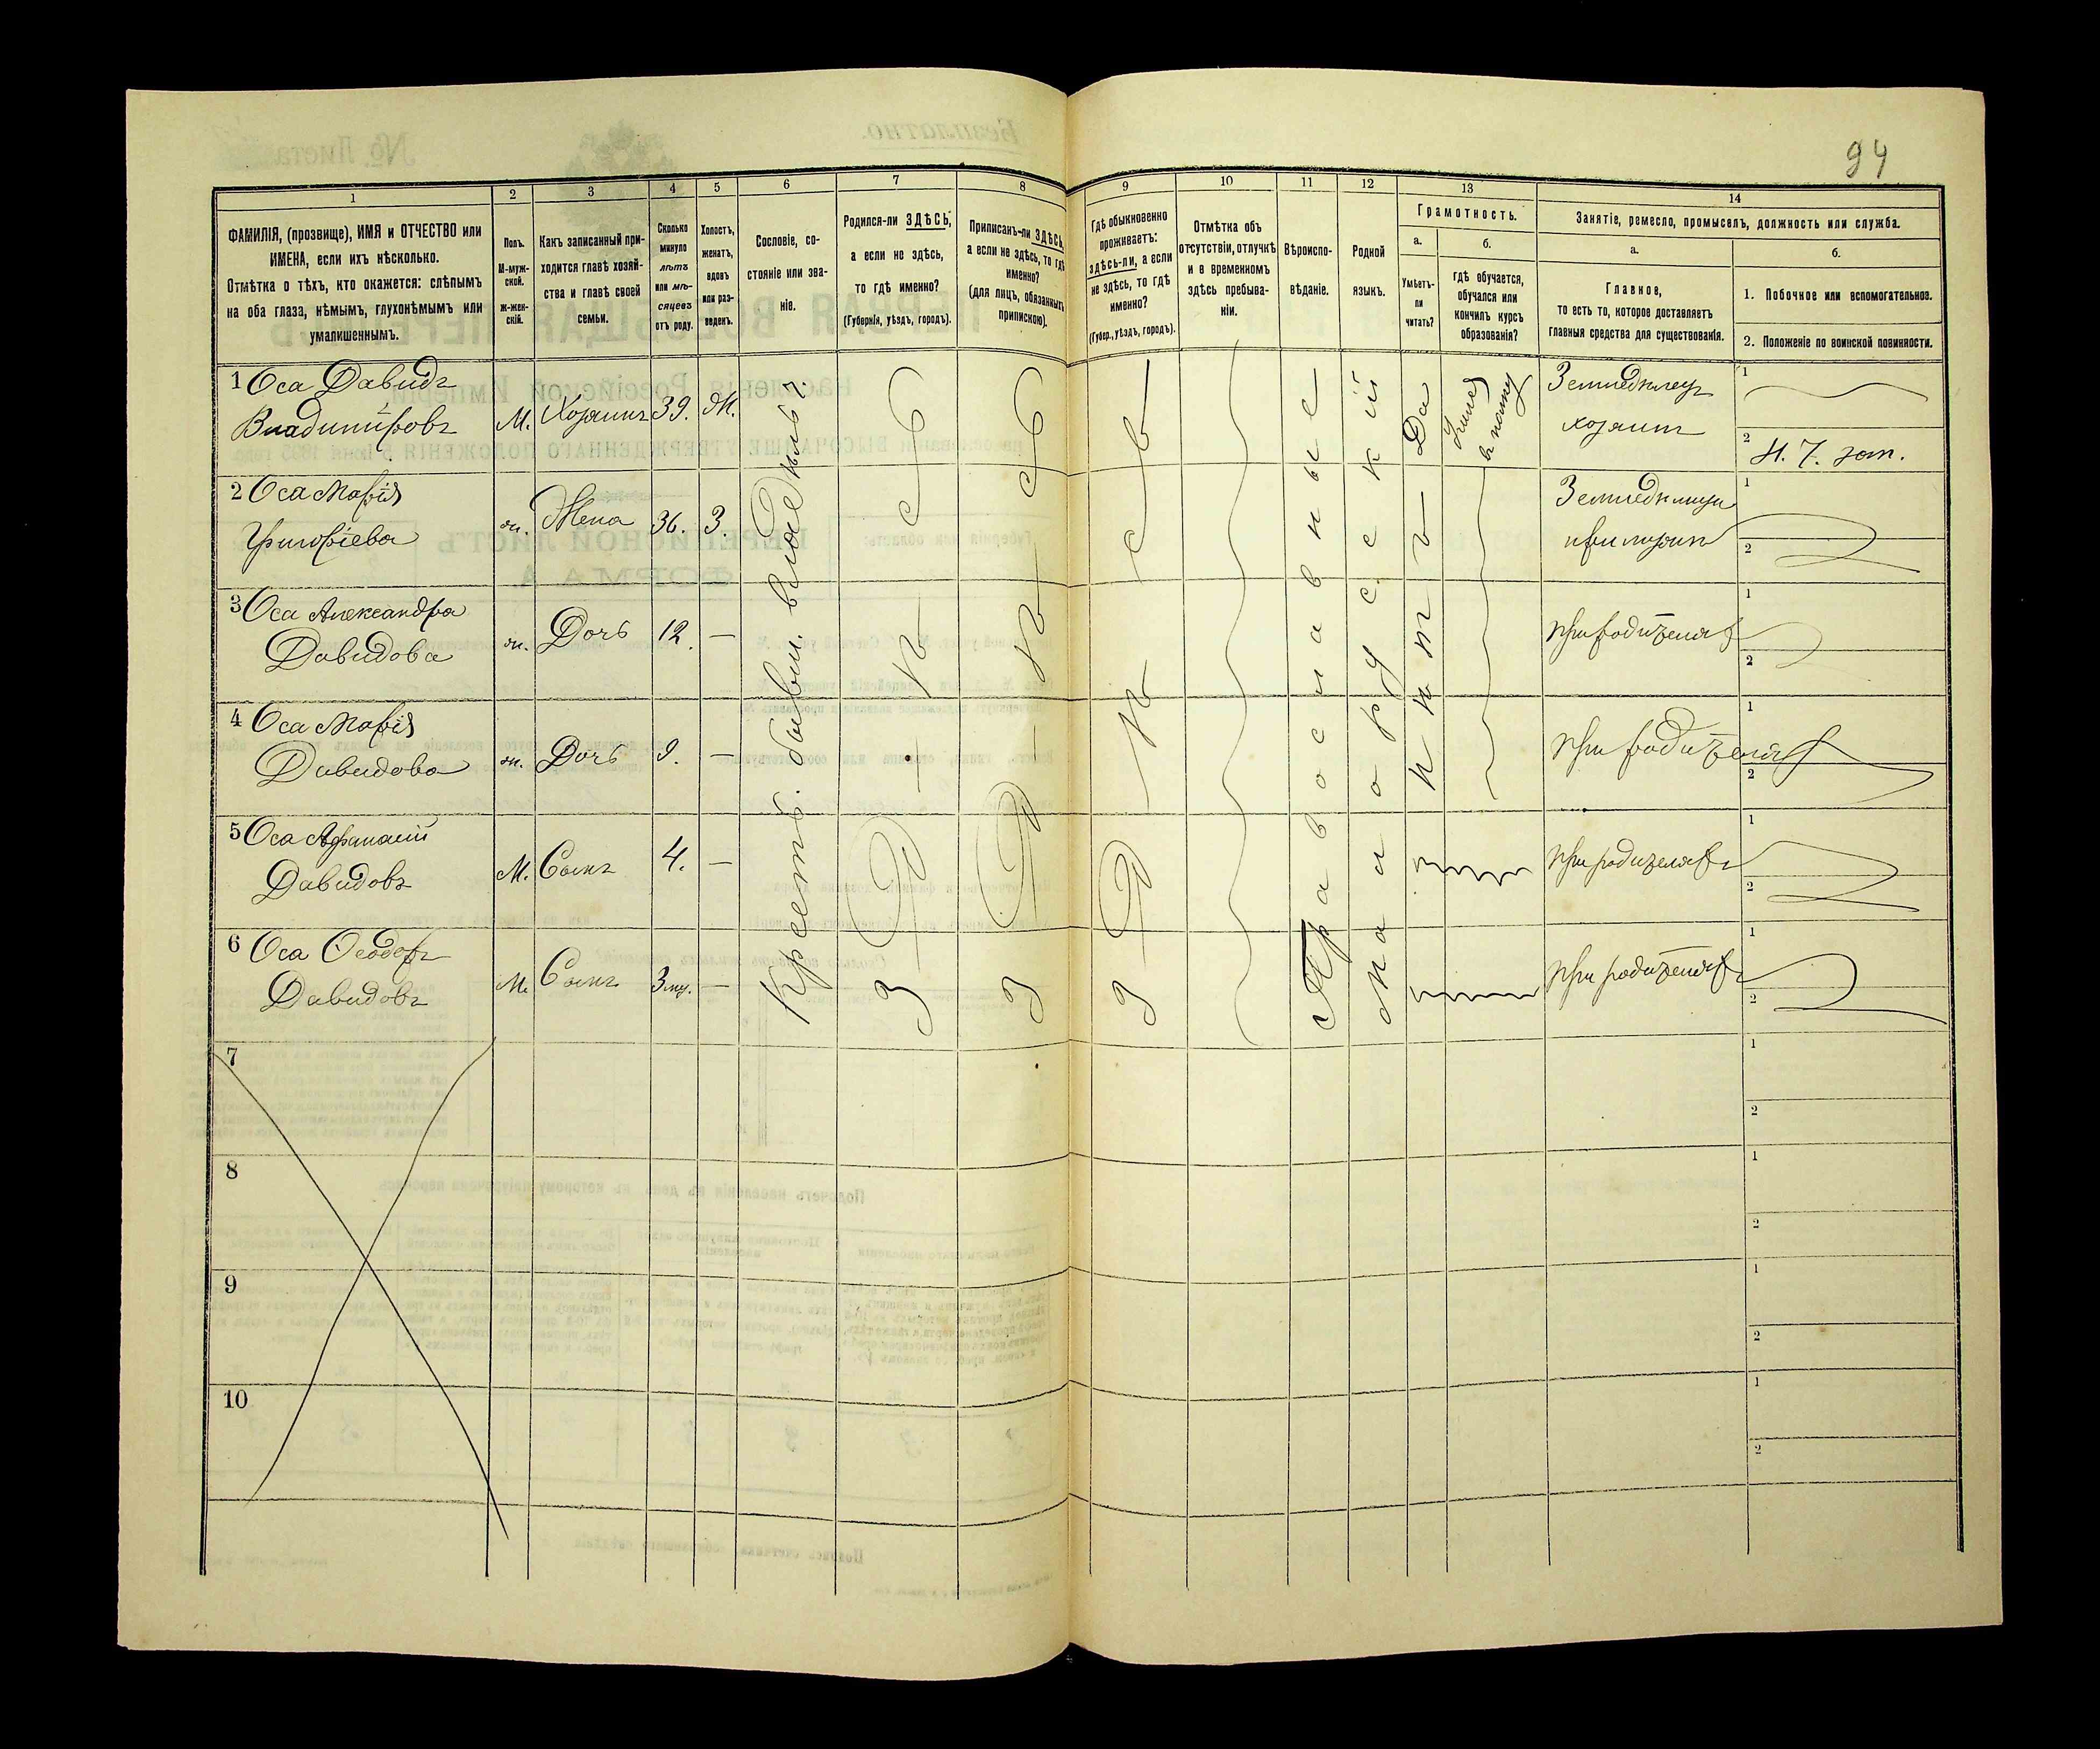 94
1
2
3
4
5
6
7
8
9
10
11
12
13
14
ФАМИЛІЯ, (прозвище), ИМЯ и ОТЧЕСТВО или
ИМЕНА, если ихъ нѣсколько.
Отмѣтка о тѣхъ, кто окажется: слѣпымъ
на оба глаза, нѣмымъ, глухонѣмымъ или
умалишеннымъ.
Полъ.
М-муж-
ской.
Ж-жен-
скій.
Какъ записанный при-
ходится главѣ хозяй-
ства и главѣ своей
семьи.
Сколько
минуло
лѣтъ
или мѣ-
сяцевъ
отъ роду.
Холостъ,
женатъ,
вдовъ
или раз-
веденъ.
Сословіе, со-
стояніе или зва-
ніе.
Родился-ли ЗДѢСЬ,
а если не здѣсь,
то гдѣ именно?
(Губернія, уѣздъ, городъ).
Приписанъ-ли ЗДѢСЬ,
а если не здѣсь, то гдѣ
именно?
(для лицъ, обязанныхъ
припискою).
Гдѣ обыкновенно
проживаетъ:
здѣсь-ли, а если
не здѣсь, то гдѣ
именно?
(Губер., уѣздъ, городъ).
Отмѣтка объ
отсутствіи, отлучкѣ
и о временномъ
здѣсь пребыва-
ніи.
Вѣроиспо-
вѣданіе.
Родной
языкъ.
Грамотность.
а.
Умѣетъ-
ли
читать?
б.
гдѣ обучается,
обучался или
кончилъ курсъ
образованія?
Занятіе, ремесло, промыселъ, должность или служба.
а.
Главное,
то есть то, которое доставляетъ
главныя средства для существованія.
б.
1. Побочное или вспомогательное.
2. Положеніе по воинской повинности.
1 Оса Давидъ
Владиміровъ
М. Хозяинъ 39. Ж.
Крестъ. бывш. владѣльч.
Здѣсь
Здѣсь
Здѣсь
Православные
Малорусскій
Да
Земледѣлецъ
хозяинъ
1
2
2 Оса Марія
Григоріева
ж. Жена 36. З.
нѣтъ
Земледѣлица
1
2
3 Оса Александра
Давидова
ж. Дочь 12. —
при родителяхъ
1
2
4 Оса Марія
Давидова
ж. Дочь 9. —
при родителяхъ
1
2
5 Оса Афанасій
Давидовъ
М. Сынъ 4. —
при родителяхъ
1
2
6 Оса Ѳеодоръ
Давидовъ
М. Сынъ —
при родителяхъ
1
2
7
1
2
8
1
2
9
1
2
10
1
2